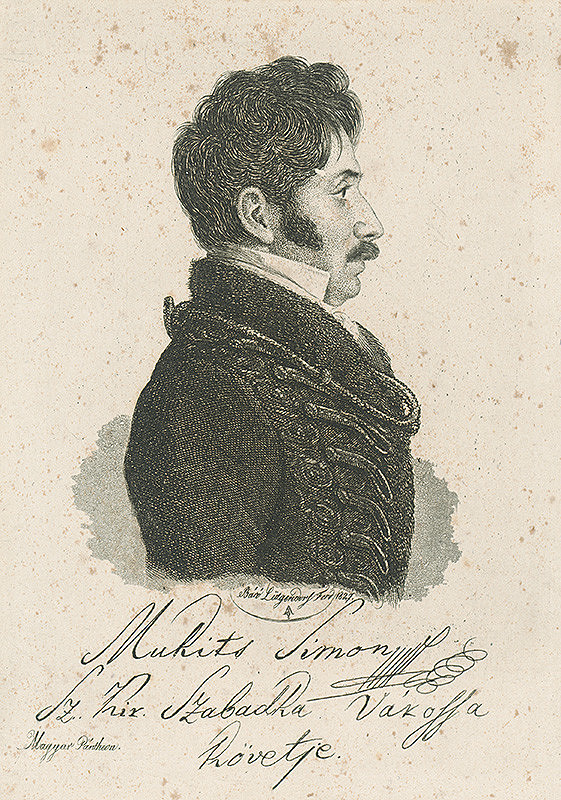 Báró Lütgendorf Ferd. 1827.
Mukits Simon
Sz. Kir. Szabadka Várossa
Követje.
Magyar Pántheon.